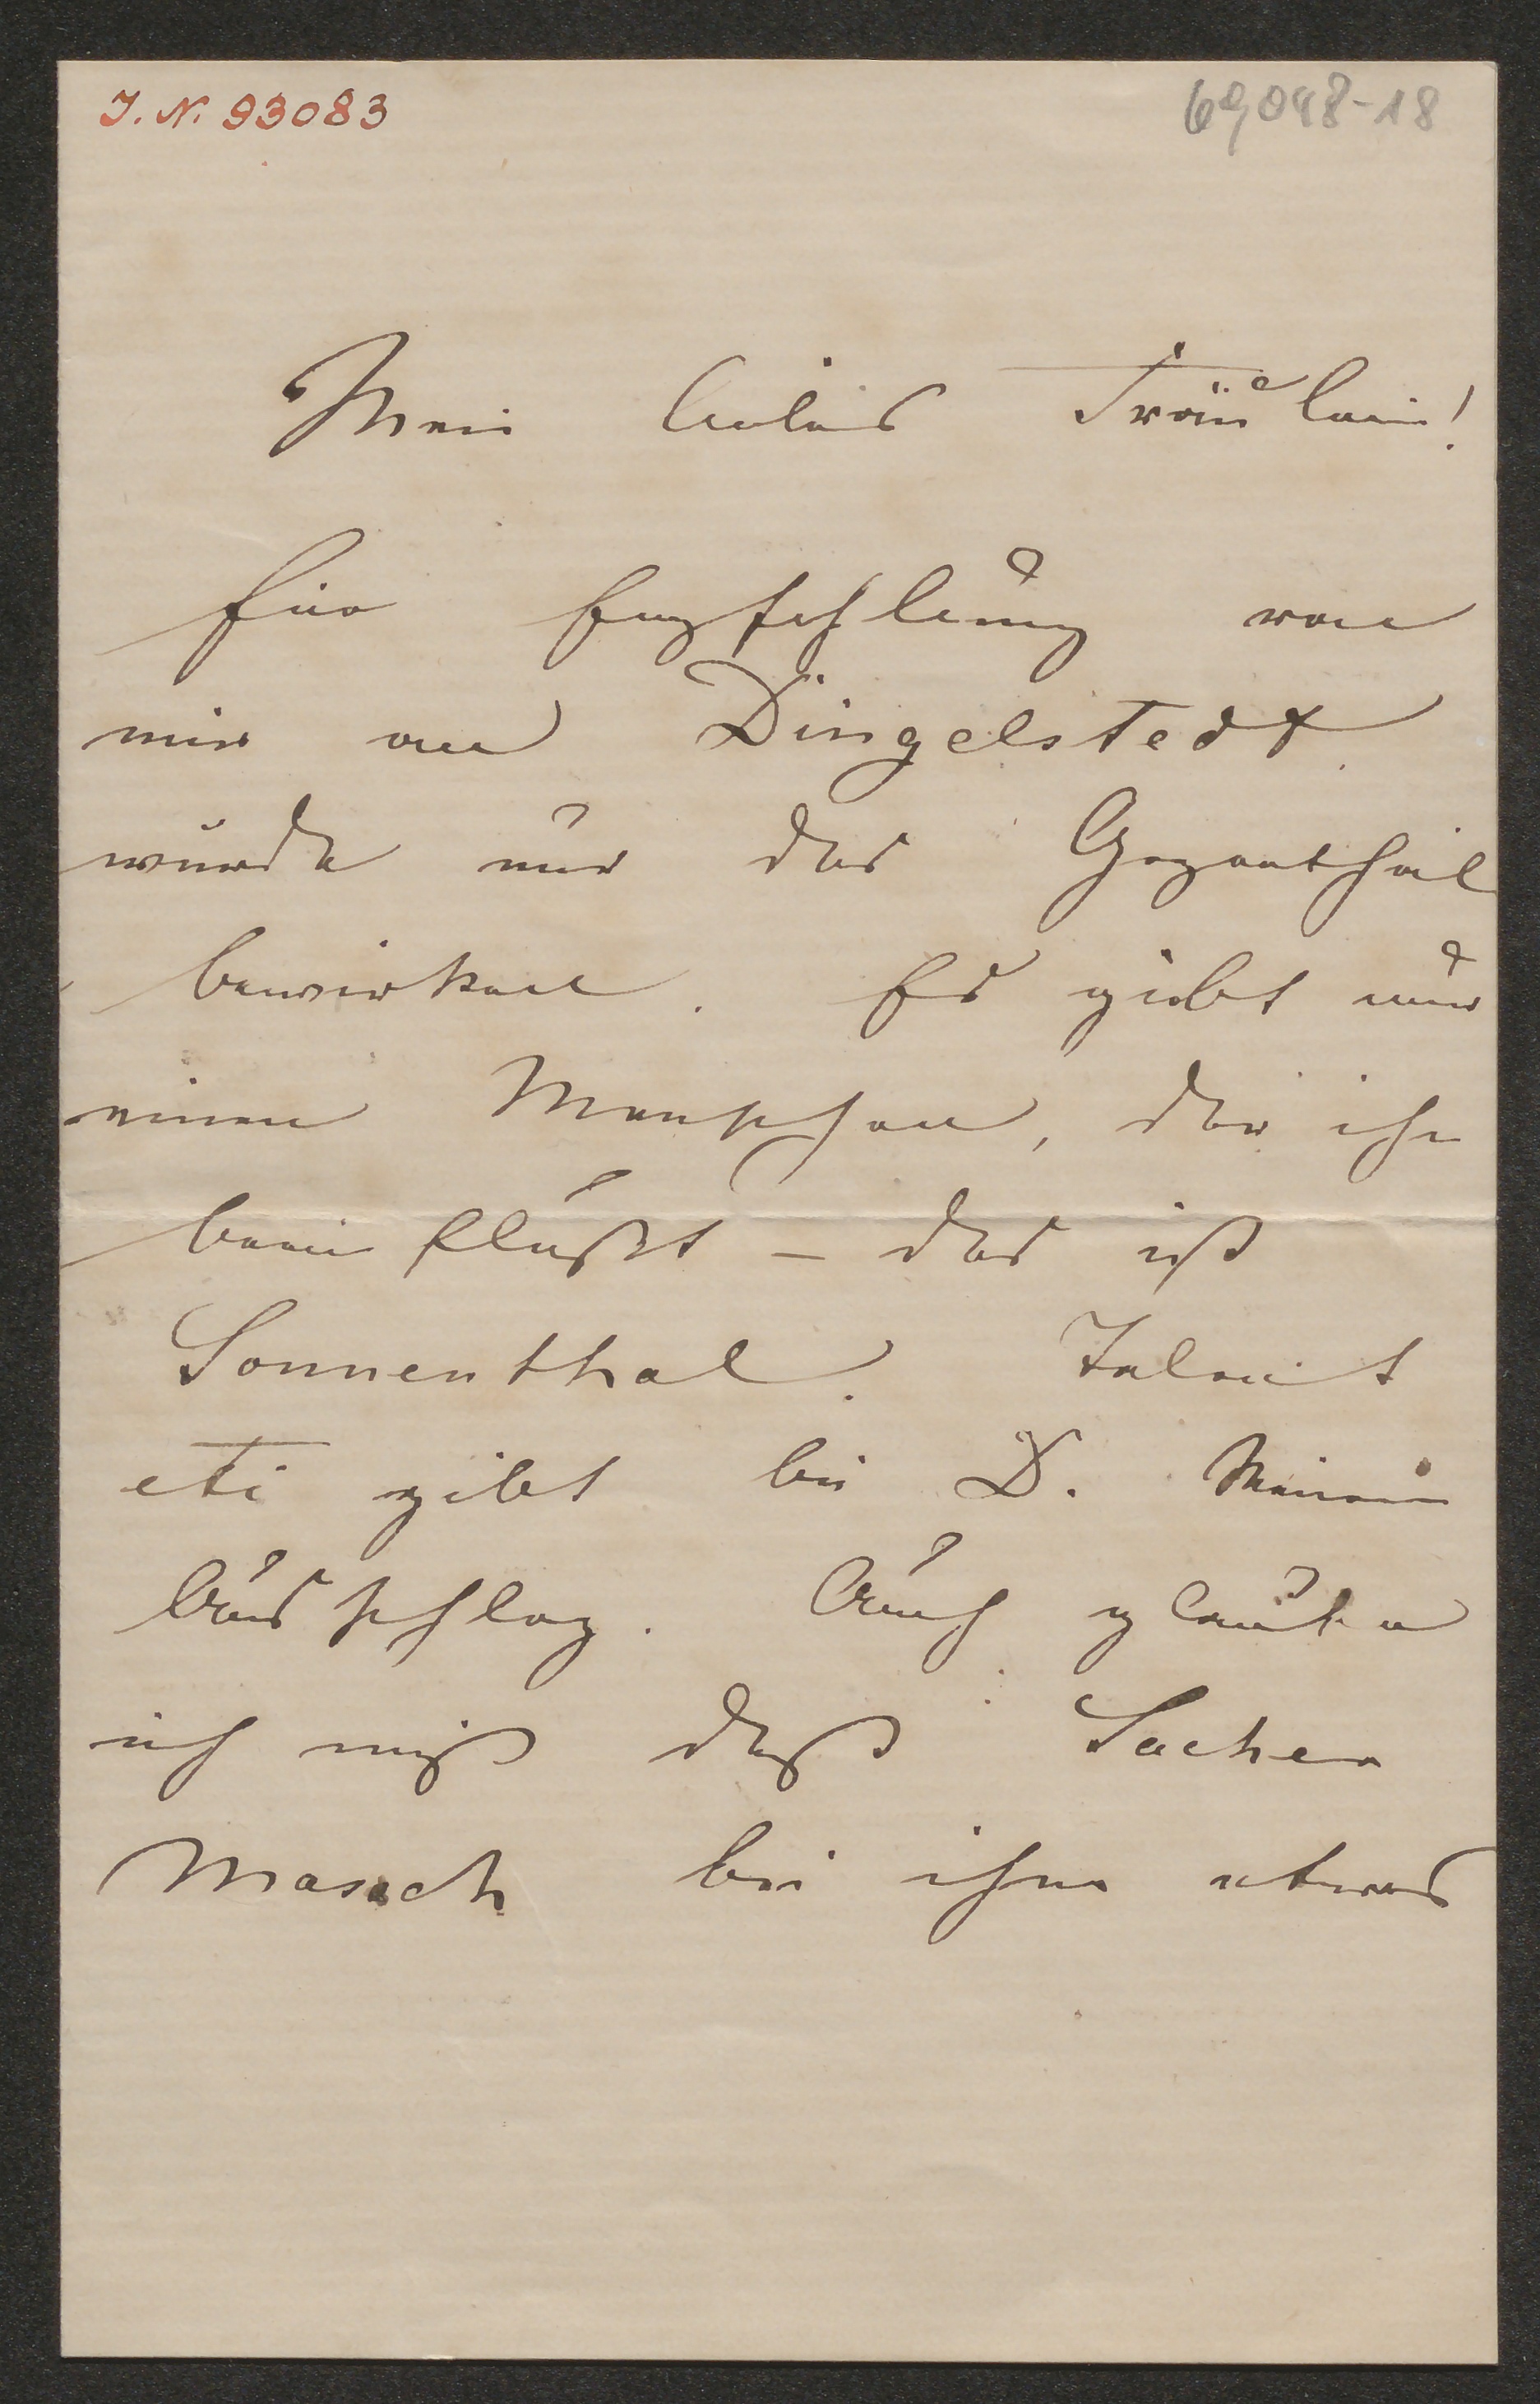 J. N. 93083
69048-18
Mein liebes Fräulein!
Eine Empfehlung von
mir an Dingelstedt
würde nur das Gegentheil
bewirken. Es giebt nur
einen Menschen, der ihn
beeinflußt – das ist
Sonnenthal. Talent
etc gibt bei D. keinen
Ausschlag. Auch glaube
ich nicht daß Sacher
Masoch bei ihm etwas